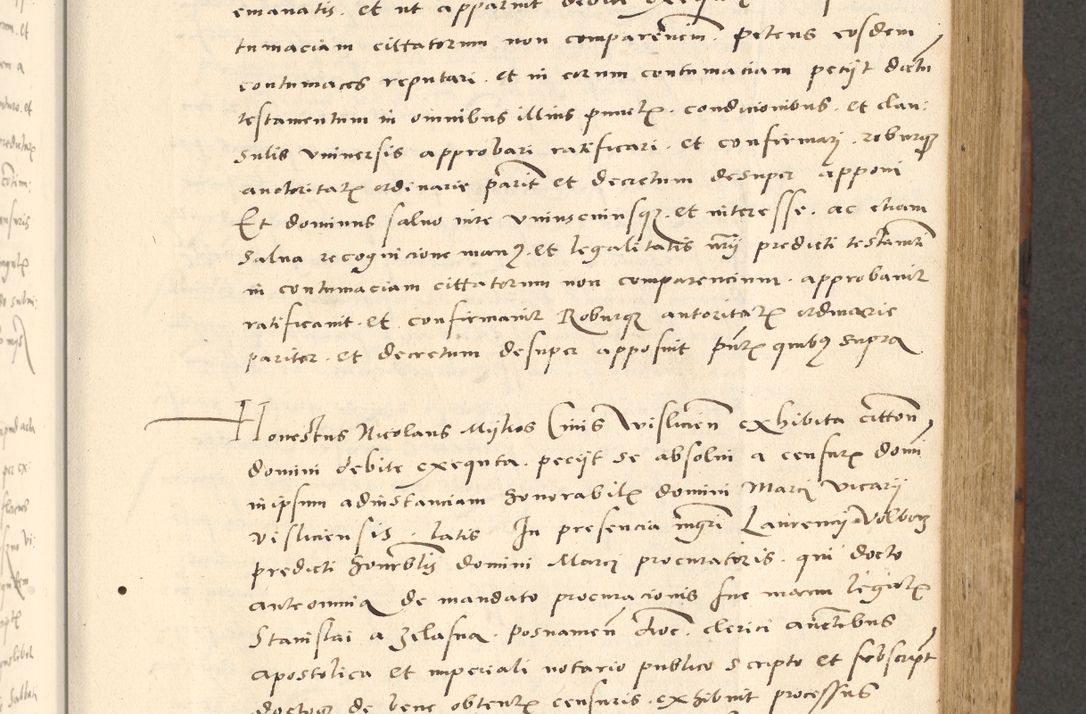 emanatis. et ut apparuit debite
tumaciam cittatorum non comparencium. petens eosdem
contumaces reputari. et in eorum contumaciam peciit dictu
testamentum in omnibus illius punctis. condicionibus. et clau:
sulis vniuersis approbari ratificari. et confirmari. roburq
auctoritatis ordinarie pariter et decretum desuper apponi
Et dominus saluo iure vniuscuiusq. et interesse. ac etiam
salua recognicione manus. et legalitatis nrii predicti testamenti
in contumaciam cittatorum non comparencium. approbauit
ratificauit. et confirmauit Roburq autoritatis ordinarie
pariter. et decretum desuper apposuit pntibus quibus supra
Honestus Nicolaus Miksos Ciuis Wisliciens exhibita cittone
domini debite exequta. peciit se absolui a censuris domi
in ipsum ad instanciam honorabilis domini Marci vicarii
visliciensis. latis In presencia mgri Laurencii Volborz
predicti honorabilis domini Marci procuratoris. qui docto
ante omnia de mandato procuracionis sue manu legalis
Stanislai a Zelasna. Posnanien dioc. clerici autoritatibus
apostolica et imperiali notario publico scripto et subscript
doctoq de bene obtentis censuris. exhibuit processus